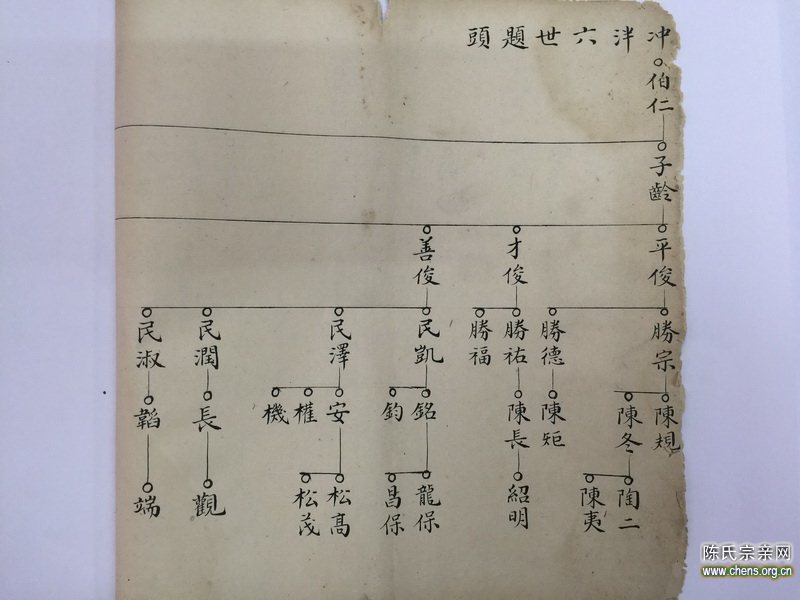 冲泮六世題頭
伯仁
子齡
平俊
才俊
善俊
勝宗
勝德
勝祐
勝福
民凱
民澤
民潤
民淑
陳規
陳冬
陳矩
陳長
銘
鈞
安
權
機
長
韜
陶二
陳夷
紹明
龍保
昌保
松高
松茂
觀
端
陈氏宗亲网
www.chens.org.cn